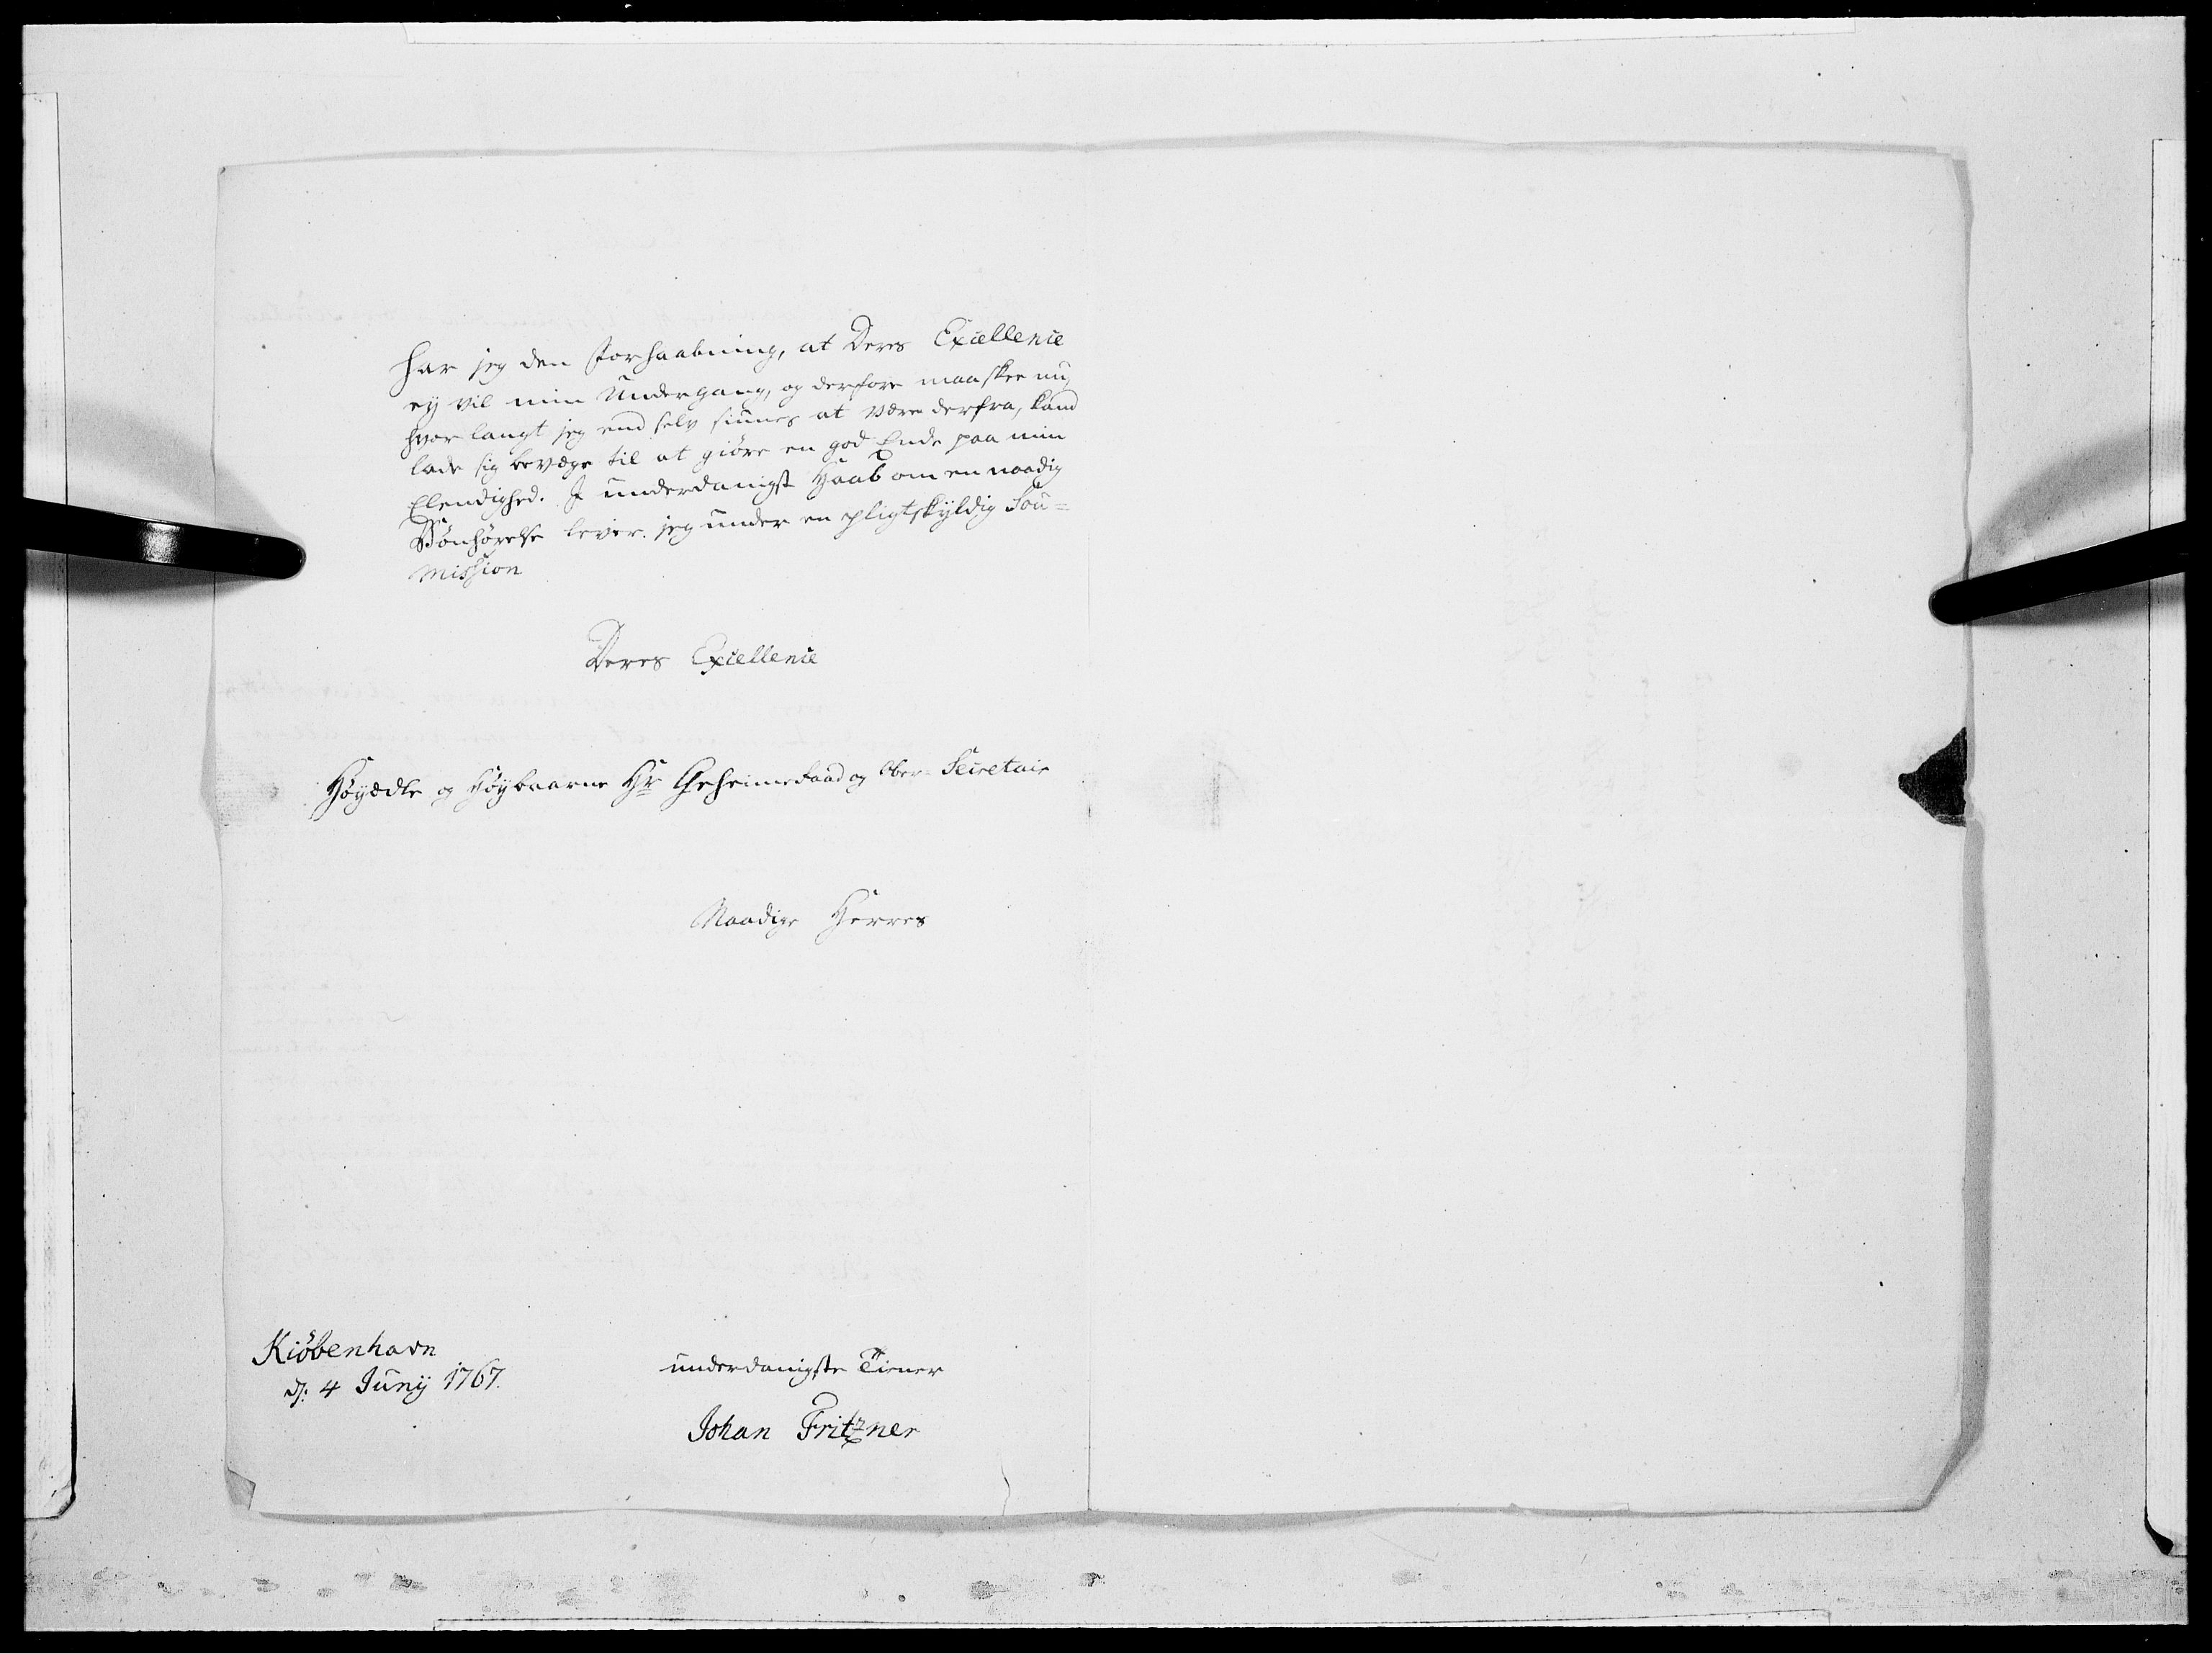 har jeg den Forhaabning, at Deres Excellence
ey vil min Undergang, og derfore maaskee nu,
hvor langt jeg end selv siunes at være derfra, kand
lade sig bevæge til at giöre en god Ende paa min
Elendighed. I underdanigst Haab om en naadig
Bönhörelse lever jeg under en pligtskyldig Sou=
mission
Deres Excellence
Höyædle og Höybaarne Hr Geheime Raad og Ober=Secretair
Naadige Herres
Kiöbenhavn
d: 4 Juny 1767.
underdanigste Tiener
Johan Fritzner